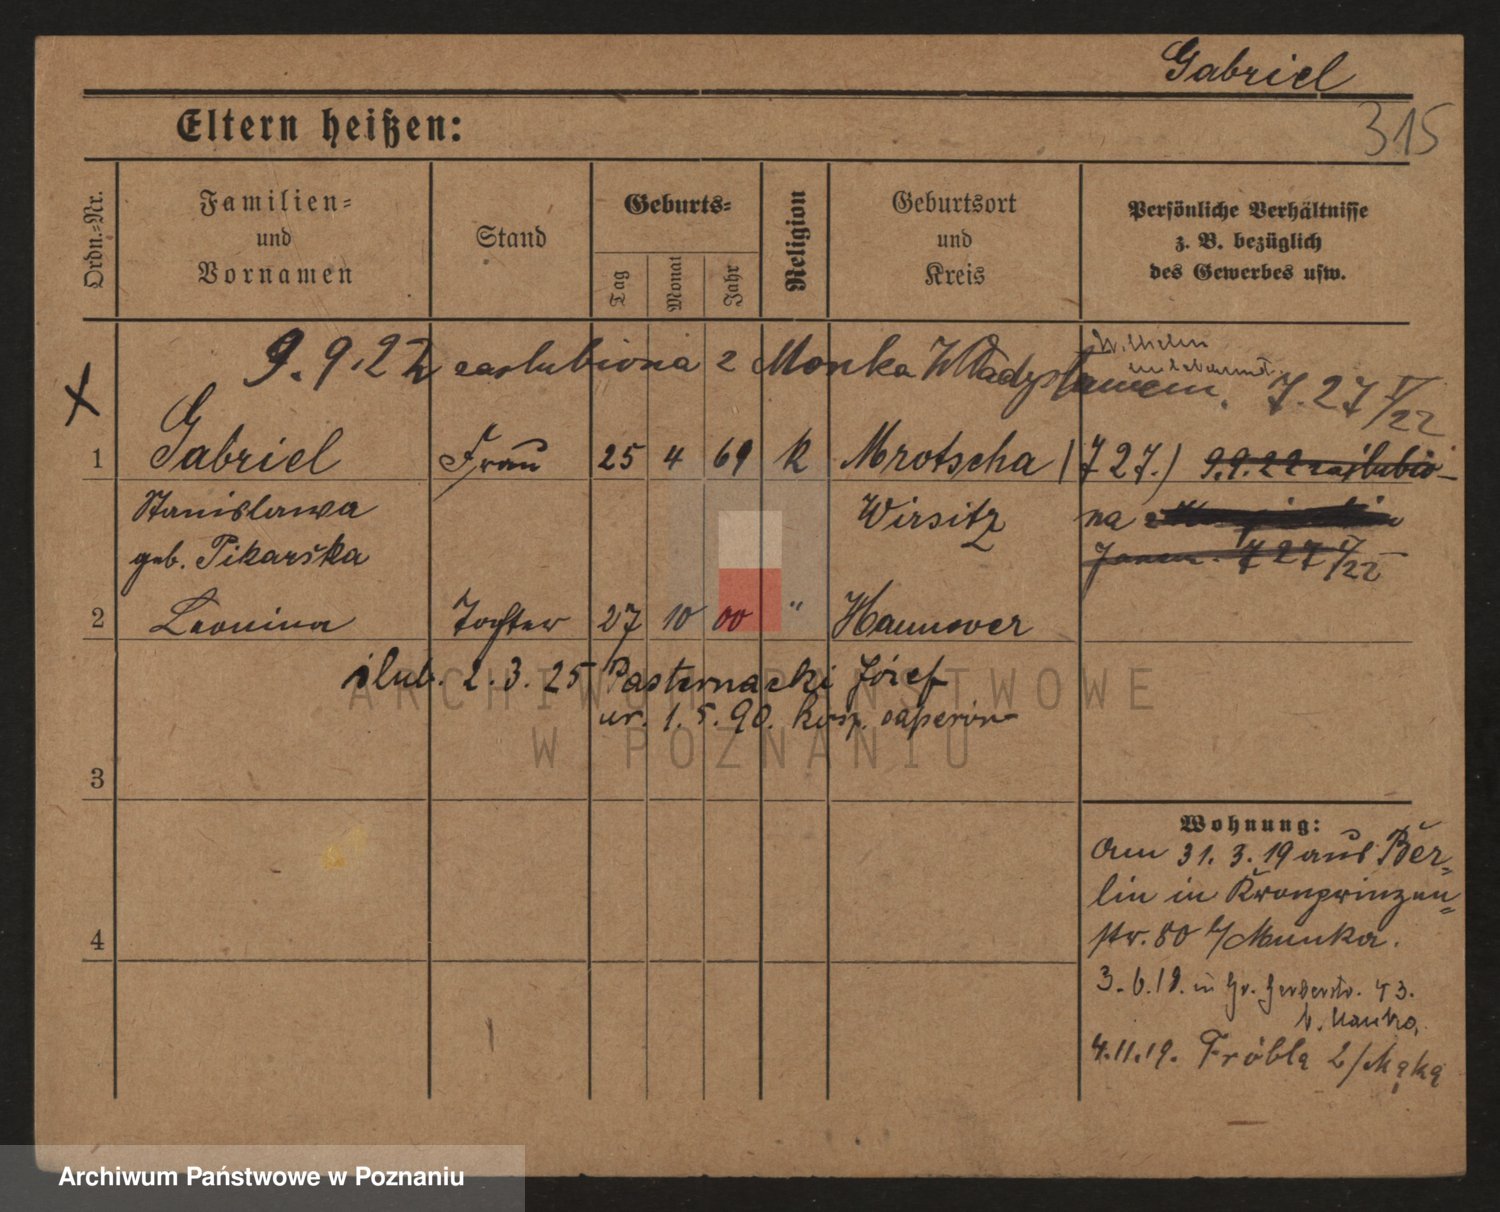 Gabriel
315
Eltern heißen:
Ordn.-Nr.
Familien-
und
Vornamen
Stand
Geburts-
Tag
Monat
Jahr
Religion
Geburtsort
und
Kreis
Persönliche Verhältnisse
z. B. bezüglich
des Gewerbes usw.
Wilhelm
9.9.22 zaslubiona z Monka Władysławem. 7.27 V/22
X
1 Gabriel Frau 25 4 69 k Mrotscha (727.) 9.9.22 zaślubio-
Stanislawa Wirsitz na
geb. Pikarska 727 V/22
2 Leonina Tochter 27 10 00 " Hannover
ślub. 2.3.25 Pasternacki Józef
ur. 1.5.90.
3
4
Wohnung:
Am 31.3.19 aus Ber-
lin in Kronprinzen-
str. 80 b/Munka.
3.6.19. in Gr. Gerberstr. 43.
b.
4.11.19. Fröbla 2/Mąką
ARCHIWUM PAŃSTWOWE
W POZNANIU
Archiwum Państwowe w Poznaniu